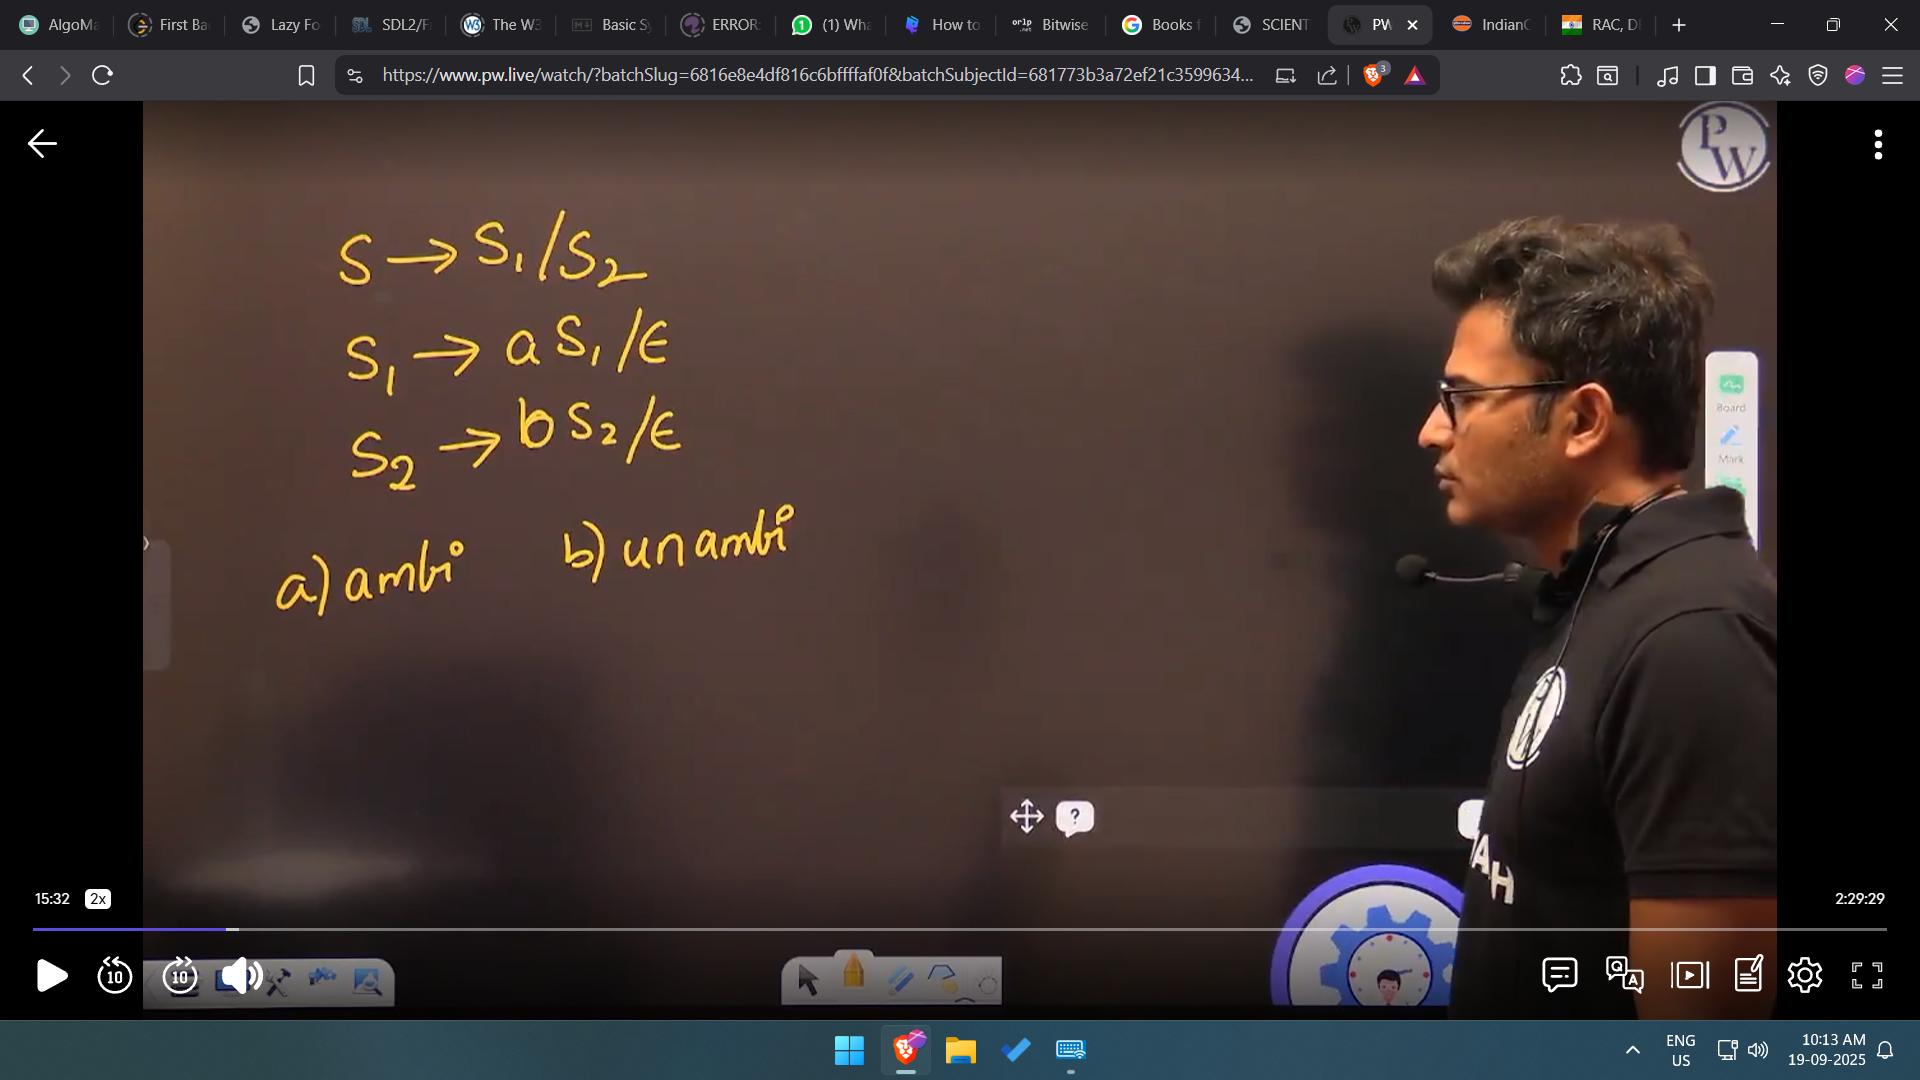 AlgoMa
First Ba
Lazy Fo
SDL2/F
The W3
Basic Sy
ERROR:
(1) Wha
How to
Bitwise
Books f
SCIENT
PW
IndianO
RAC, D
https://www.pw.live/watch/?batchSlug=6816e8e4df816c6bffffaf0f&batchSubjectId=681773b3a72ef21c3599634...
3
PW
S → S₁/S₂
S₁ → a S₁/ϵ
S₂ → b S₂/ϵ
a) ambi b) unambi
Board
Mark
?
AH
15:32 2x
2:29:29
10
10
ENG
US
10:13 AM
19-09-2025